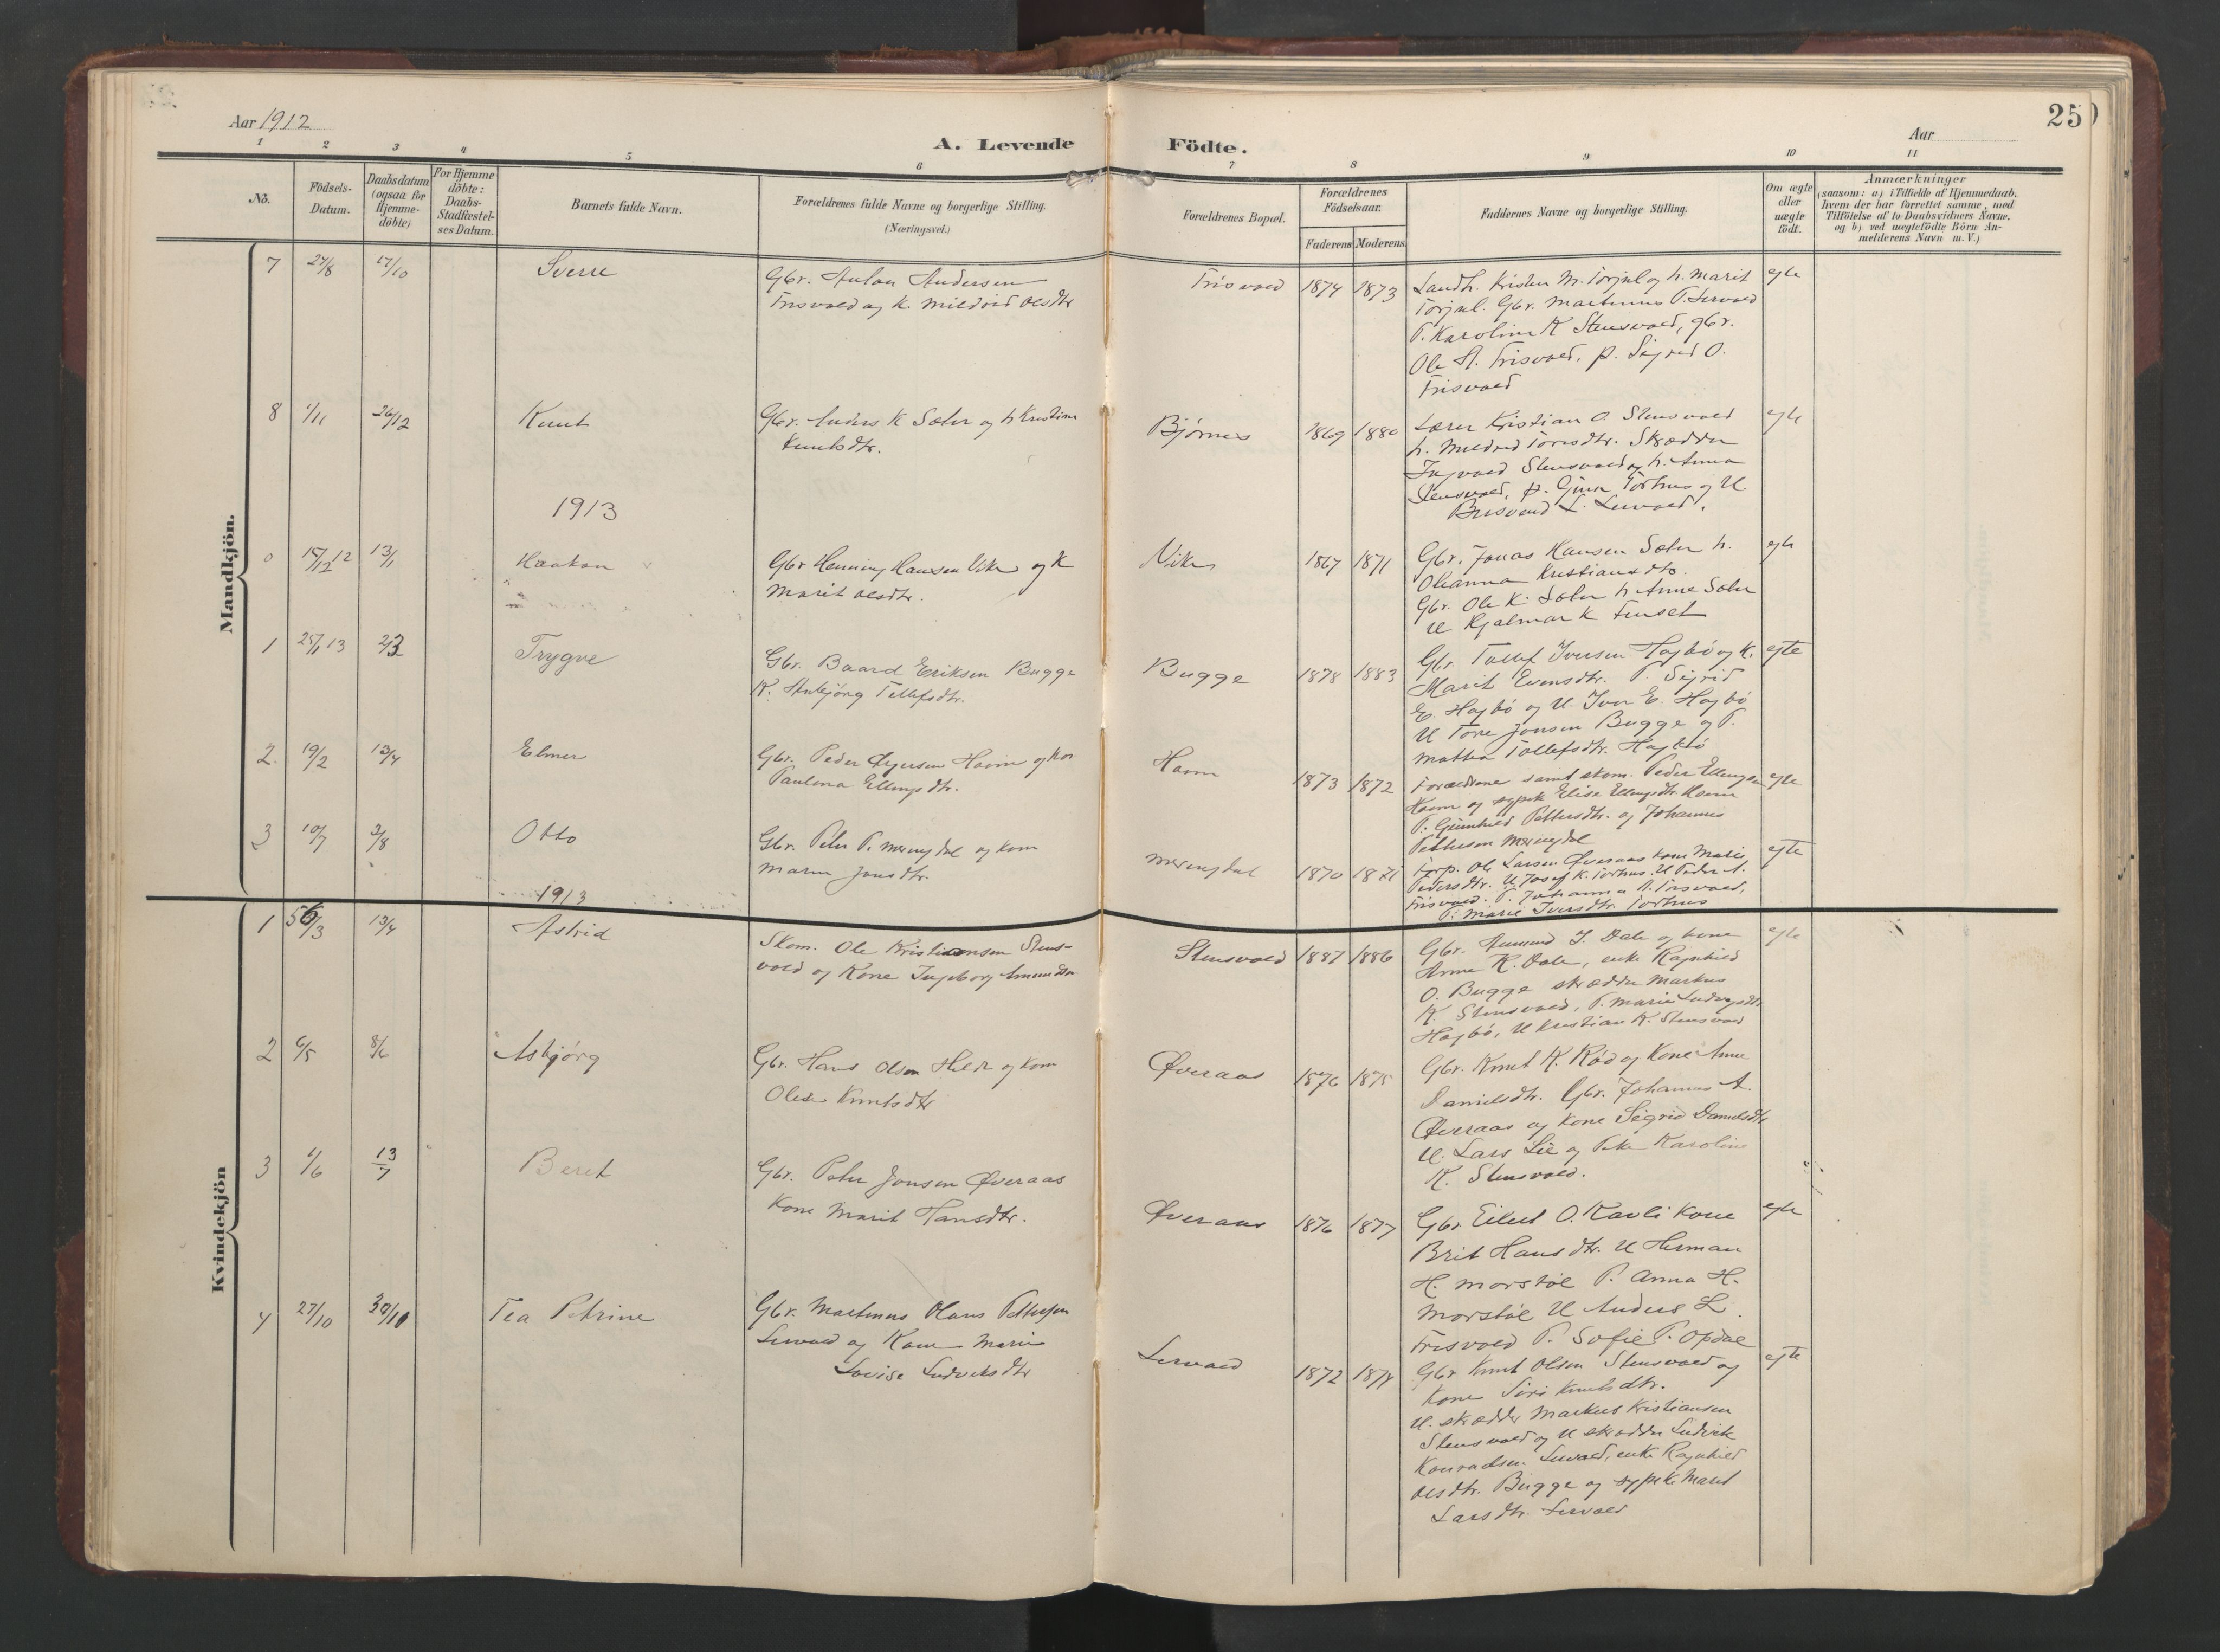 25
Aar 1912
Aar
A. Levende Födte.
1 2 3 4 5 6 7 8 9 10 11
No.
Födsels-Datum.
Daabsdatum (ogsaa for Hjemme-döbte)
For Hjemme döbte: Daabs-Stadfæstel-ses Datum.
Barnets fulde Navn.
Forældrenes fulde Navne og borgerlige Stilling.
(Næringsvei.)
Forældrenes Bopæl.
Forældrenes Födselsaar.
Faderens Moderens
Faddernes Navne og borgerlige Stilling.
Om ægte eller uægte födt.
Anmærkninger
(saasom: a) i Tilfælde af Hjemmedaab, hvem der har forrettet samme, med Tilföielse af to Daabsvidners Navne, og b) ved uegtefödte Börn An-melderens Navn m. V.)
Mandkjön.
7 27/8 17/10 Sverre
Gbr. Anton Andersen
Frisvold og K. Mildrid Olsdtr
Frisvold 1874 1873
Landh. Kristen M. Torjul og h. Marit
Torjul. Gbr. Martinus P. Lervold
P. Karoline K Stensvold, gbr.
Ole A. Frisvold, p. Sigrid O.
Frisvold
egte
8 1/11 26/12 Knut
Gbr. Anders K Sæter og h Kristine
Knutsdtr.
Bjørnes 1869 1880
Lærer Kristian O. Stensvold
h. Mildrid Toresdtr. Skrædder
Ingvald Stensvold og h. Anna
Stensvold, p. Gjura Torhus og U.
L. Lervold.
egte
1913
0 15/12 12 13/1 Haakon
Gbr Henning Hansen Vike og K
Marit Olsdtr.
Vike 1867 1871
Gbr. Jonas Hansen Sæter h.
Oleanna Kristiansdtr.
Gbr. Ole K. Sæter h Anne Sæter
U Hjalmar K Furset
egte
1 25/1 13 2/3 Trygve
Gbr. Baard Eriksen Bugge
K. Anbjørg Tollefsdtr.
Bugge 1878 1883
Gbr. Tollef Iversen Hagbø og K.
Marit Evensdtr. P. Sigrid
E. Hagbø og U. Iver E. Hagbø
U Tore Jonsen Bugge og P.
Mattea Tollefsdtr. Hagbø
egte
2. 19/2 13/4 Elmer
Gbr. Peder Ågersen Hovm og kone
Pauline Ellingsdtr.
1873 1872
Forældrene samt skom. Peder Ellingsen
og sypik Elise Ellingsdtr.
P. Gunhild Pettersdtr. og Johannes
Pettersen Meringdal
egte
3 10/7 3/8 Otto
Gbr. Peter P. Meringdal og kone
Maren Jonsdtr.
Meringdal 1870 1871
Forp. Ole Larsen Øveraas kone Marie
Pedersdtr. U Josef K. Torhus. U Peder A.
Frisvold. P. Johanna A. Frisvold,
P. Marie Iversdtr. Torhus
egte
1913
Kvindekjön
1 6/3 13/4 Astrid
Skom. Ole Kristiansen Stens-
vold og Kone Ingeborg Amundsdtr
Stensvold 1887 1886
Gbr. Amund I. Dale og kone
Anne K. Dale, enke Ragnhild
O. Bugge skrædder Markus
K. Stensvold, P. Marie Ludvigsdtr.
Hagbø, U Kristian K. Stensvold
egte
2 6/5 8/6 Asbjørg
Gbr. Hans Olsen Hilde og kone
Olise Knutsdtr
Øveraas 1876 1875
Gbr. Knut K. Rød og Kone Anne
Danielsdtr. Gbr. Johannes A.
Øveraas og Kone Sigrid Danielsdtr
U. Lars Lie og Pike Karoline
K. Stensvold.
3 1/6 13/7 Beret
Gbr. Peter Jonsen Øveraas
Kone Marit Hansdtr.
Øveraas 1876 1877
Gbr Eilert O. Ravli Kone
Brit Hansdtr. U Herman
H. Morstøl P. Anna H.
Morstøl U Anders L.
Frisvold P. Sofie P. Opdøl
egte
4 27/10 30/10 Tea Petrine
Gbr. Martinus Olaus Pettersen
Lervold og Kone Marie
Lovise Ludviksdtr
Lervold 1872 1878
Gbr Knut Olsen Stensvold og
Kone Siri Knutsdtr.
U. skrædder Markus Kristiansen
Stensvold og U skrædder Ludvik
Konradsen Lervold, enke Ragnhild
Olsdtr. Bugge og sypike Marit
Larsdtr. Lervold
egte